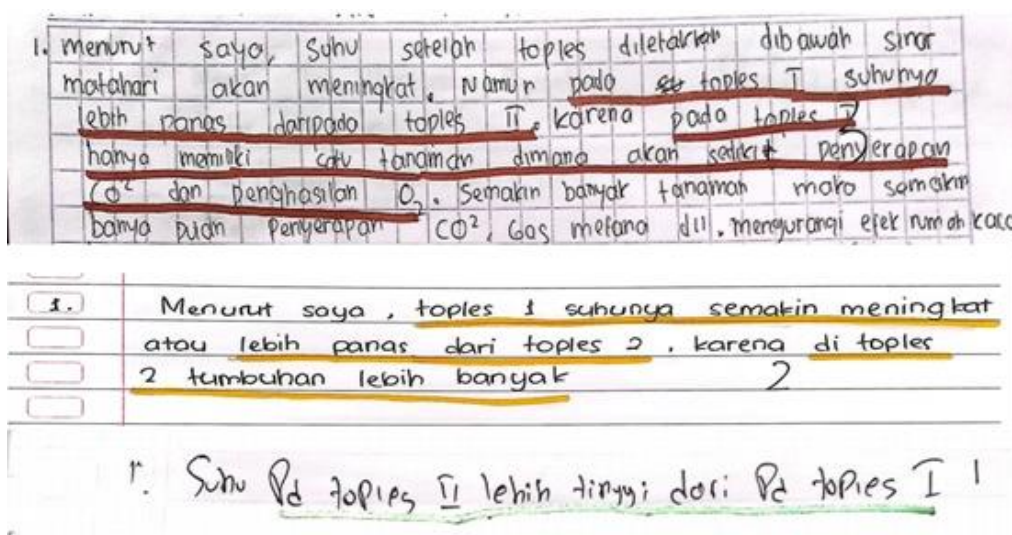 1. menurut saya, Suhu setelah toples diletakkan dibawah sinar
matahari akan meningkat. Namun pada toples I suhunya
lebih panas daripada toples II. karena pada toples I
hanya memiliki satu tanaman dimana akan sedikit penyerapan
CO² dan penghasilan O₂. Semakin banyak tanaman maka semakin
banya pu penyerapan CO², Gas metana dll. mengurangi efek rumah kaca
1. Menurut saya, toples 1 suhunya semakin meningkat
atau lebih panas dari toples 2. karena di toples
2 tumbuhan lebih banyak 2
1. Suhu Pd toples II lebih tinggi dari Pd toples I 1